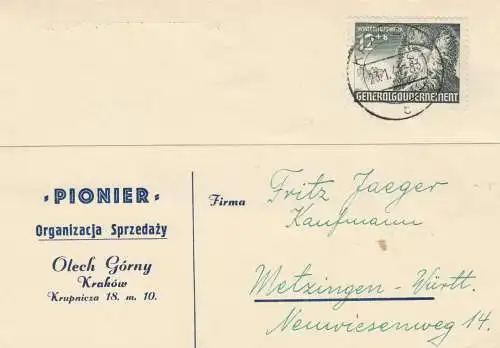 12+8
GENERALGOUVERNEMENT
• PIONIER •
Organizacja Sprzedaży
Olech Górny
Kraków
Krupnicza 18. m. 10.
Firma Fritz Jaeger
Kaufmann
Metzingen - Württ.
Neuwiesenweg 14.